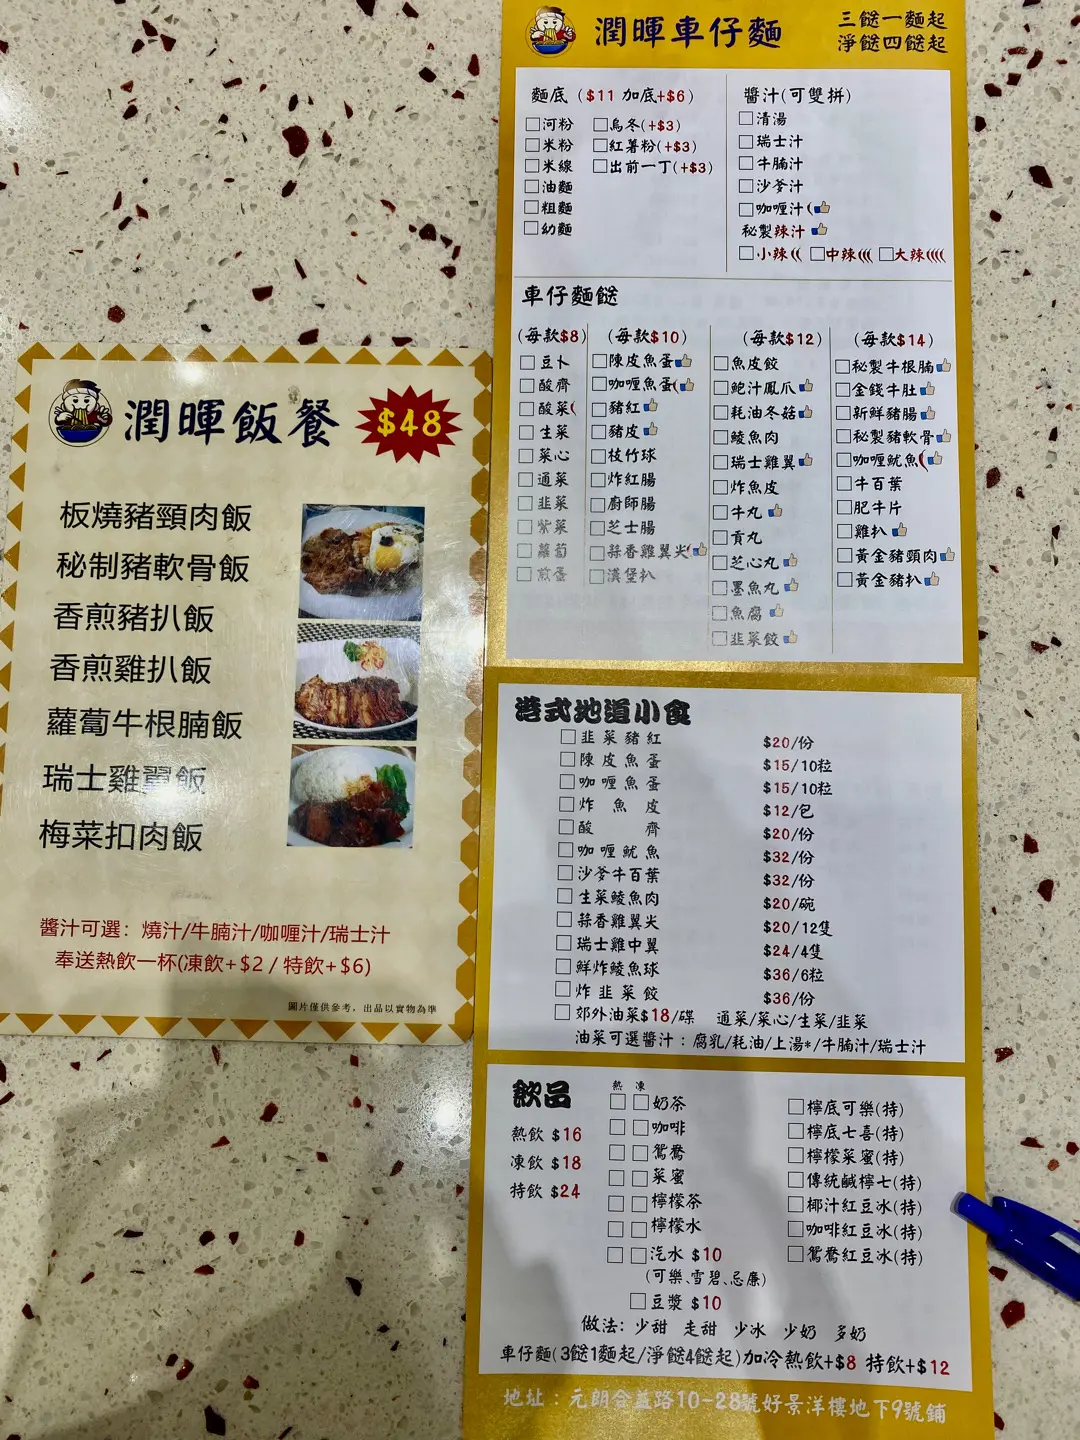 潤暉飯餐
$48
板燒豬頸肉飯
秘制豬軟骨飯
香煎豬扒飯
香煎雞扒飯
蘿蔔牛根腩飯
瑞士雞翼飯
梅菜扣肉飯
醬汁可選：燒汁/牛腩汁/咖喱汁/瑞士汁
奉送熱飲一杯(凍飲+$2 / 特飲+$6)
圖片僅供參考，出品以實物為準
潤暉車仔麵
三餸一麵起
淨餸四餸起
麵底 ($11 加底+$6)
河粉
米粉
米線
油麵
粗麵
幼麵
烏冬(+$3)
紅薯粉(+$3)
出前一丁(+$3)
醬汁(可雙拼)
清湯
瑞士汁
牛腩汁
沙爹汁
咖喱汁
秘製辣汁
小辣 中辣 大辣
車仔麵餸
(每款$8)
豆卜
酸齊
酸菜
生菜
菜心
通菜
韭菜
紫菜
蘿蔔
煎蛋
(每款$10)
陳皮魚蛋
咖喱魚蛋
豬紅
豬皮
枝竹球
炸紅腸
廚師腸
芝士腸
蒜香雞翼尖
漢堡扒
(每款$12)
魚皮餃
鮑汁鳳爪
耗油冬菇
鯪魚肉
瑞士雞翼
炸魚皮
牛丸
貢丸
芝心丸
墨魚丸
魚腐
韭菜餃
(每款$14)
秘製牛根腩
金錢牛肚
新鮮豬腸
秘製豬軟骨
咖喱魷魚
牛百葉
肥牛片
雞扒
黃金豬頸肉
黃金豬扒
港式地道小食
韭菜豬紅 $20/份
陳皮魚蛋 $15/10粒
咖喱魚蛋 $15/10粒
炸魚皮 $12/包
酸齊 $20/份
咖喱魷魚 $32/份
沙爹牛百葉 $32/份
生菜鯪魚肉 $20/碗
蒜香雞翼尖 $20/12隻
瑞士雞中翼 $24/4隻
鮮炸鯪魚球 $36/6粒
炸韭菜餃 $36/份
郊外油菜$18/碟 通菜/菜心/生菜/韭菜
油菜可選醬汁：腐乳/耗油/上湯*/牛腩汁/瑞士汁
飲品
熱飲 $16
凍飲 $18
特飲 $24
熱 凍
奶茶
咖啡
鴛鴦
菜蜜
檸檬茶
檸檬水
汽水 $10
(可樂、雪碧、忌廉)
豆漿 $10
檸底可樂(特)
檸底七喜(特)
檸檬菜蜜(特)
傳統鹹檸七(特)
椰汁紅豆冰(特)
咖啡紅豆冰(特)
鴛鴦紅豆冰(特)
做法：少甜 走甜 少冰 少奶 多奶
車仔麵(3餸1麵起/淨餸4餸起)加冷熱飲+$8 特飲+$12
地址：元朗合益路10-28號好景洋樓地下9號鋪